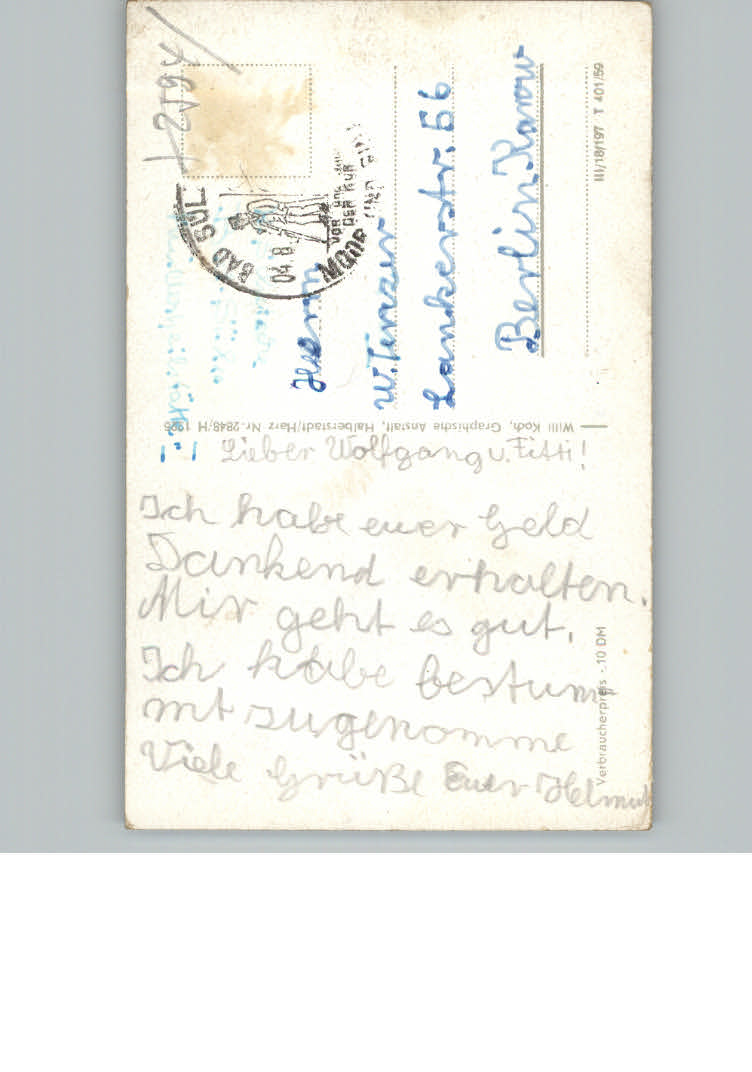 2594
BAD SÜL
04.8.
MOOR UND
VOR UND
DER KUR
Herrn
W. Tinzer
Lankerstr. 56
Berlin Karow
III/18/197 T 401/59
Willi Koch, Graphische Anstalt, Halberstadt/Harz Nr. 2848/H
Lieber Wolfgang u. Fitti!
Ich habe euer Geld
Dankend erhalten.
Mir geht es gut.
Ich habe bestum
mt zugenomme
Viele Grüße Euer Helmut
Verbraucherpreis -.10 DM